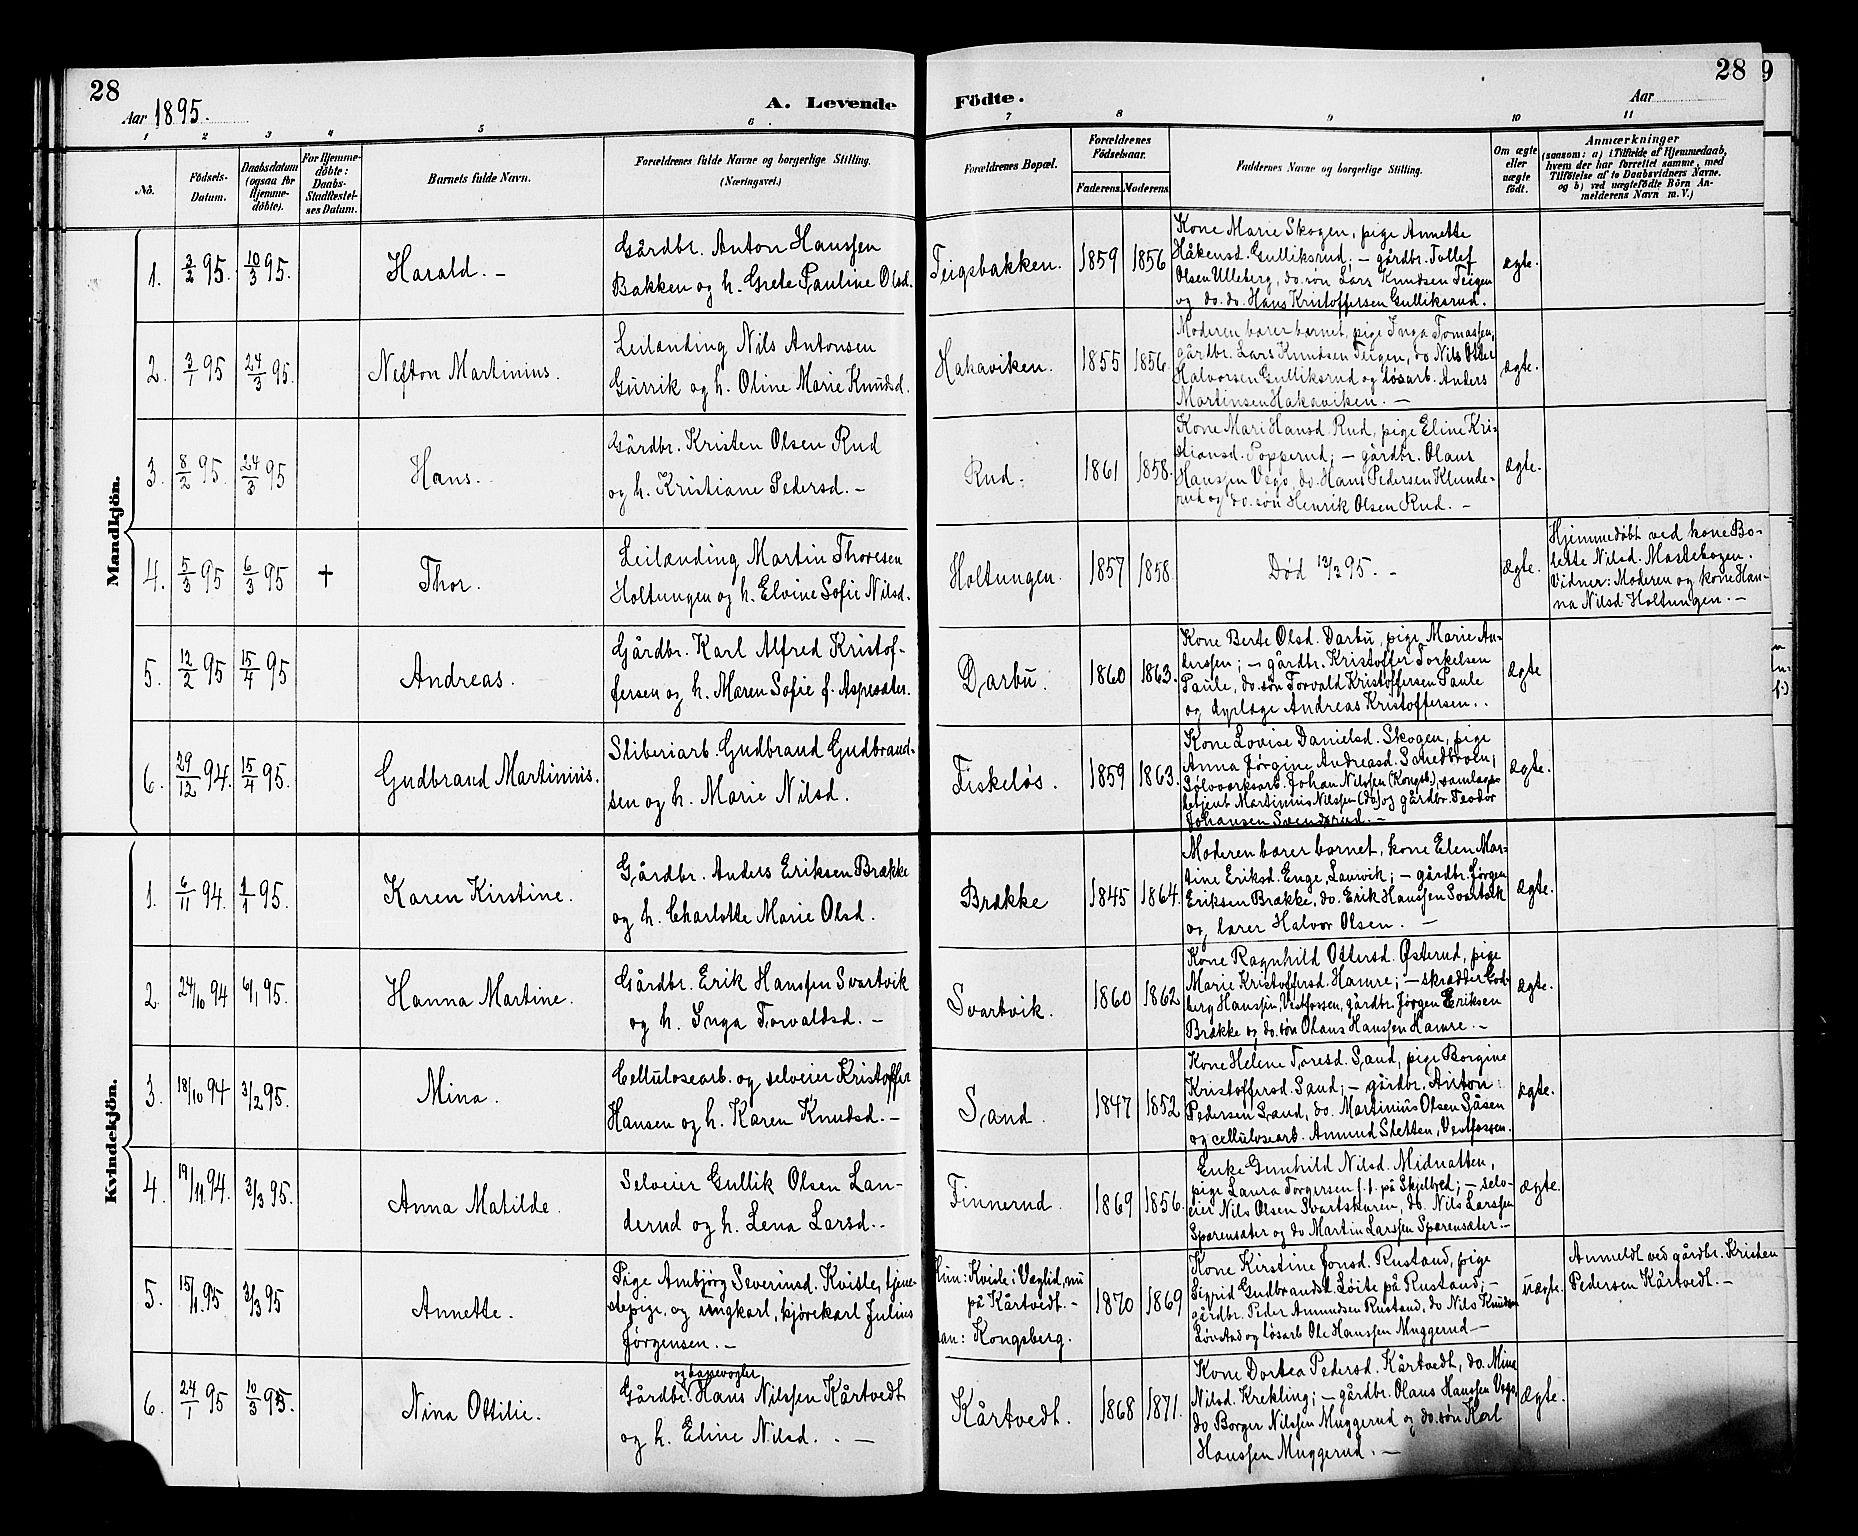 28
Aar 1895.
A. Levende
Födte.
Aar
28
9
1 2 3 4 5 6 7 8 9 10 11
No.
Födsels-
Datum.
Daabsdatum
(ogsaa for
Hjemme-
döbte).
For Hjemme-
döbte:
Daabs-
Stadfæstel-
ses Datum.
Barnets fulde Navn.
Forældrenes fulde Navne og borgerlige Stilling.
(Næringsvei.)
Forældrenes Bopæl.
Forældrenes
Födselsaar.
Faderens. Moderens.
Faddernes Navne og borgerlige Stilling.
Om ægte
eller
uægte
födt.
Anmærkninger
(saasom: a) i Tilfælde af Hjemmedaab,
hvem der har forrettet samme, med
Tilföielse af to Daabsvidners Navne,
og b) ved uægtefödte Börn An-
melderens Navn m. V.)
Mandkjön.
1. 3/2 95. 10/3 95. Harald. –
Gårdbr. Anton Hanssen
Bakken og h. Grete Pauline Olsd.
Teigsbakken. 1859 1856
Kone Marie Skogen, pige Annette
Håkensd. Gulliksrud; – gårdbr. Tollef
Olsen Ulleberg, do. søn Lars Knudsen Teigen
og do. do. Hans Kristoffersen Gulliksrud.
ægte.
2. 3/1 95 24/3 95. Nefton Martinius.
Leilænding Nils Antonsen
Gurrik og h. Oline Marie Knudsd.
Hakaviken. 1855 1856.
Moderen bærer barnet, pige Inga Tomassen,
gårdbr. Lars Knudsen Teigen, do Nils Otter
Halvorsen Gulliksrud og løsarb. Anders
Martinsen Hakaviken. –
ægte.
3. 8/2 95. 24/3 95 Hans.
Gårdbr. Kristen Olsen Rud
og h. Kristiane Pedersd. –
Rud. 1861 1858.
Kone Mari Hansd. Rud, pige Eline Kri-
stiansd. Popperud; – gårdbr. Olaus
Hanssen Vego, do. Hans Pedersen Klunde-
rud og do. søn Henrik Olsen Rud. –
ægte.
4. 5/3 95 6/3 95 † Thor.
Leilænding Martin Thoresen
Holtungen og h. Elvine Sofie Nilsd.
Holtungen. 1857 1858.
Død 13/3 95. –
ægte.
Hjemmedøbt ved kone Bo-
lette Nilsd. Mastebogen.
Vidner: Moderen og kone Han-
na Nilsd Holtungen. –
5. 12/2 95 15/4 95 Andreas.
Gårdbr. Karl Alfred Kristof-
fersen og h. Maren Sofie f. Aspesæter.
Darbu. 1860 1863.
Kone Berte Olsd. Darbu, pige Marie An-
derssen; – gårdbr. Kristoffer Torkelsen
Paule, do. søn Torvald Kristoffersen Paule
og dyrlæge Andreas Kristoffersen..
ægte
6. 29/12 94. 15/4 95. Gudbrand Martinius.
Sliberiarb. Gudbrand Gudbrand-
sen og h. Marie Nilsd.
Fiskeløs. 1859 1863.
Kone Lovise Danielsd. Skogen, pige
Anna Jørgine Andreasd.
Sølvverksarb. Johan Nilssen (Kongsb.), samlags-
betjent Martinius Nilssen (do) og gårdbr. Teodor
Johansen Svendsrud. –
ægte.
Kvindekjön.
1. 6/11 94. 1/1 95. Karen Kirstine.
Gårdbr. Anders Eriksen Brække
og h. Charlotte Marie Olsd.
Brække 1845 1864.
Moderen bærer barnet, kone Elen Mar-
tine Eriksd. Enge, Laurvik; – gårdbr. Jørgen
Eriksen Brække, do. Erik Hanssen Svartvik
og lærer Halvor Olsen. –
ægte.
2. 24/10 94 6/1 95. Hanna Martine.
Gårdbr. Erik Hanssen Svartvik
og h. Inga Torvaldsd. –
Svartvik. 1860 1862
Kone Ragnhild Ottersd. Østerud, pige
Marie Kristoffersd. Hamre; – skrædder God-
berg Hanssen, Vestfossen, gårdbr. Jørgen Eriksen
Brække og do. søn Olaus Hanssen Hamre. –
ægte.
3. 18/10 94 3/2 95. Mina.
Cellulosearb. og selveier Kristoffer
Hansen og h. Karen Knudsd. –
Sand. 1847 1852
Kone Helene Toresd. Sand, pige Borgine
Kristoffersd. Sand; – gårdbr. Anton
Pedersen Sand, do. Martinius Olsen Såsen
og cellulosearb. Amund Sletten, Vestfossen.
ægte.
4. 19/11 94. 3/3 95. Anna Matilde.
Selveier Gullik Olsen Lan-
derud og h. Lena Larsd. –
Finnerud. 1869 1856.
Enke Gunhild Nilsd. Midnatten,
pige Laura Torgersen f. t. på Skjelbred; – selv-
eier Nils Olsen Svartskuren, do. Nils Larssen
Sparensæter og do Martin Larssen Sparensæter. –
ægte.
5. 15/1 95 3/3 95 Annette.
Pige Ambjørg Severinsd. Kvisle, tjene-
stepige, og ungkarl, kjørekarl Julius
Jørgensen. –
Hun: Kvisle i Væglid, nu
på Kårtvedt. –
Han: Kongsberg.
1870 1869
Kone Kirstine Jonsd. Rustand, pige
Sigrid Gudbrandsd. Løite på Rustand; –
gårdbr. Peder Amundsen Rustand, do Nils Knudsen
Løvstad og løsarb Ole Hanssen Muggerud –
uægte.
Anmeldt ved gårdbr. Kristen
Pedersen Kårtvedt. –
6. 24/1 95 10/3 95 Nina Ottilie.
og banevogter
Gårdbr. Hans Nilssen Kårtvedt
og h. Eline Nilsd. . –
Kårtvedt. 1868 1871.
Kone Dortea Pedersd. Kårtvedt, do. Mina
Nilsd. Krekling; – gårdbr. Olaus Hanssen Vego,
do Borger Nilssen Muggerud og do. søn Karl
Hanssen Muggerud. –
ægte.